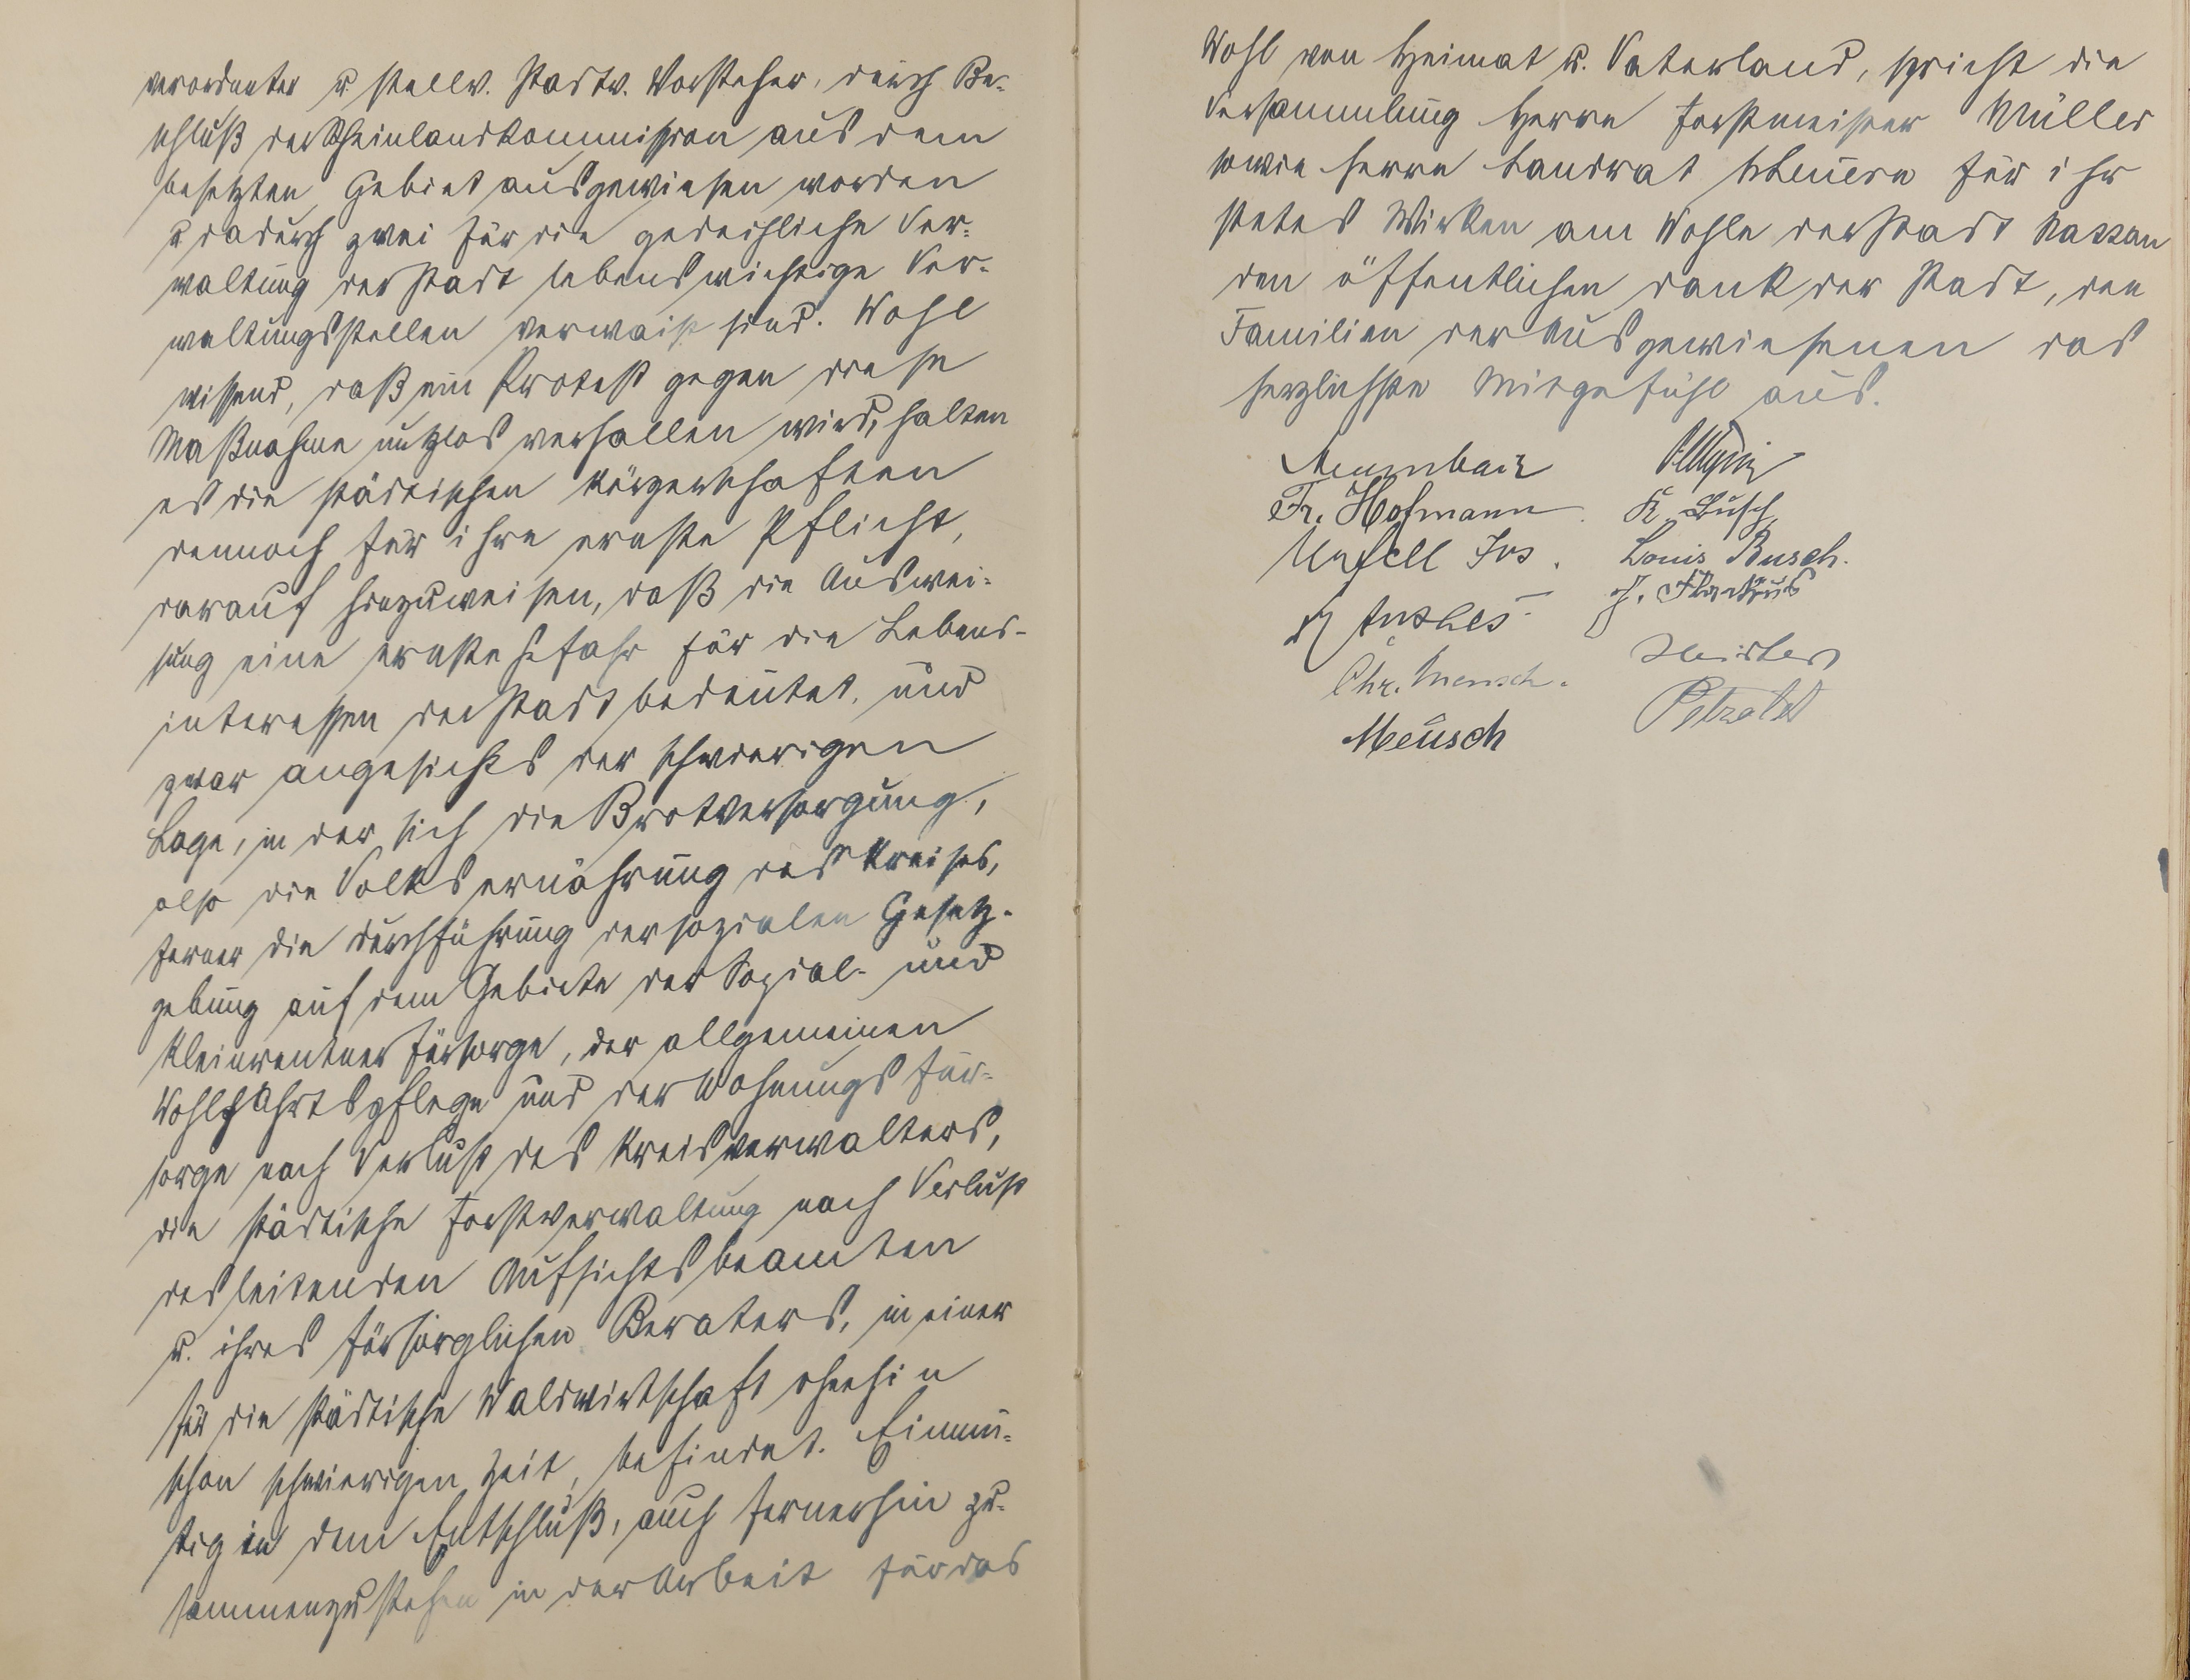 verordneter u stellv. Stadtv. Vorsteher, durch Be-
schluß der Rheinlandkommission aus dem
besetzten Gebiet ausgewiesen worden
u dadurch zwei für die gedeihliche Ver-
waltung der Stadt lebenswichtige Ver-
waltungsstellen verwaist sind. Wohl
wissend, daß ein Protest gegen diese
Maßnahme nutzlos verhallen wird, halten
es die städtischen Körperschaften
dennoch für ihre ernste Pflicht,
darauf hinzuweisen, daß die Auswei-
sung eine ernste Gefahr für die Lebens-
interessen der Stadt bedeutet, und
zwar angesichts der schwierigen
Lage, in der sich die Brotversorgung,
also die Volksernährung des Kreises,
ferner die Durchführung der sozialen Gesetz-
gebung auf dem Gebiete der Sozial- und
Kleinrentnerfürsorge, der allgemeinen
Wohlfahrtspflege und der Wohnungsfür-
sorge nach Verlust des Kreisverwalters,
die städtische Forstverwaltung nach Verlust
des leitenden Aufsichtsbeamten
u. ihres fürsorglichen Beraters, in einer
für die städtische Waldwirtschaft ohnehin
schon schwierigen Zeit, befindet. Einmü-
tig in dem Entschluß, auch fernerhin zu-
sammenzustehen in der Arbeit für das
Wohl von Heimat u. Vaterland, spricht die
Versammlung Herrn Forstmeister Müller
sowie Herrn Landrat Scheuern für ihr
stetes Wirken am Wohle der Stadt Nassau
den öffentlichen Dank der Stadt, den
Familien der Ausgewiesenen das
herzlichste Mitgefühl aus.
Fr. Hofmann. K. Busch
Unfell Jos. Louis Busch.
Anthes
Chr. Mensch.
Meusch